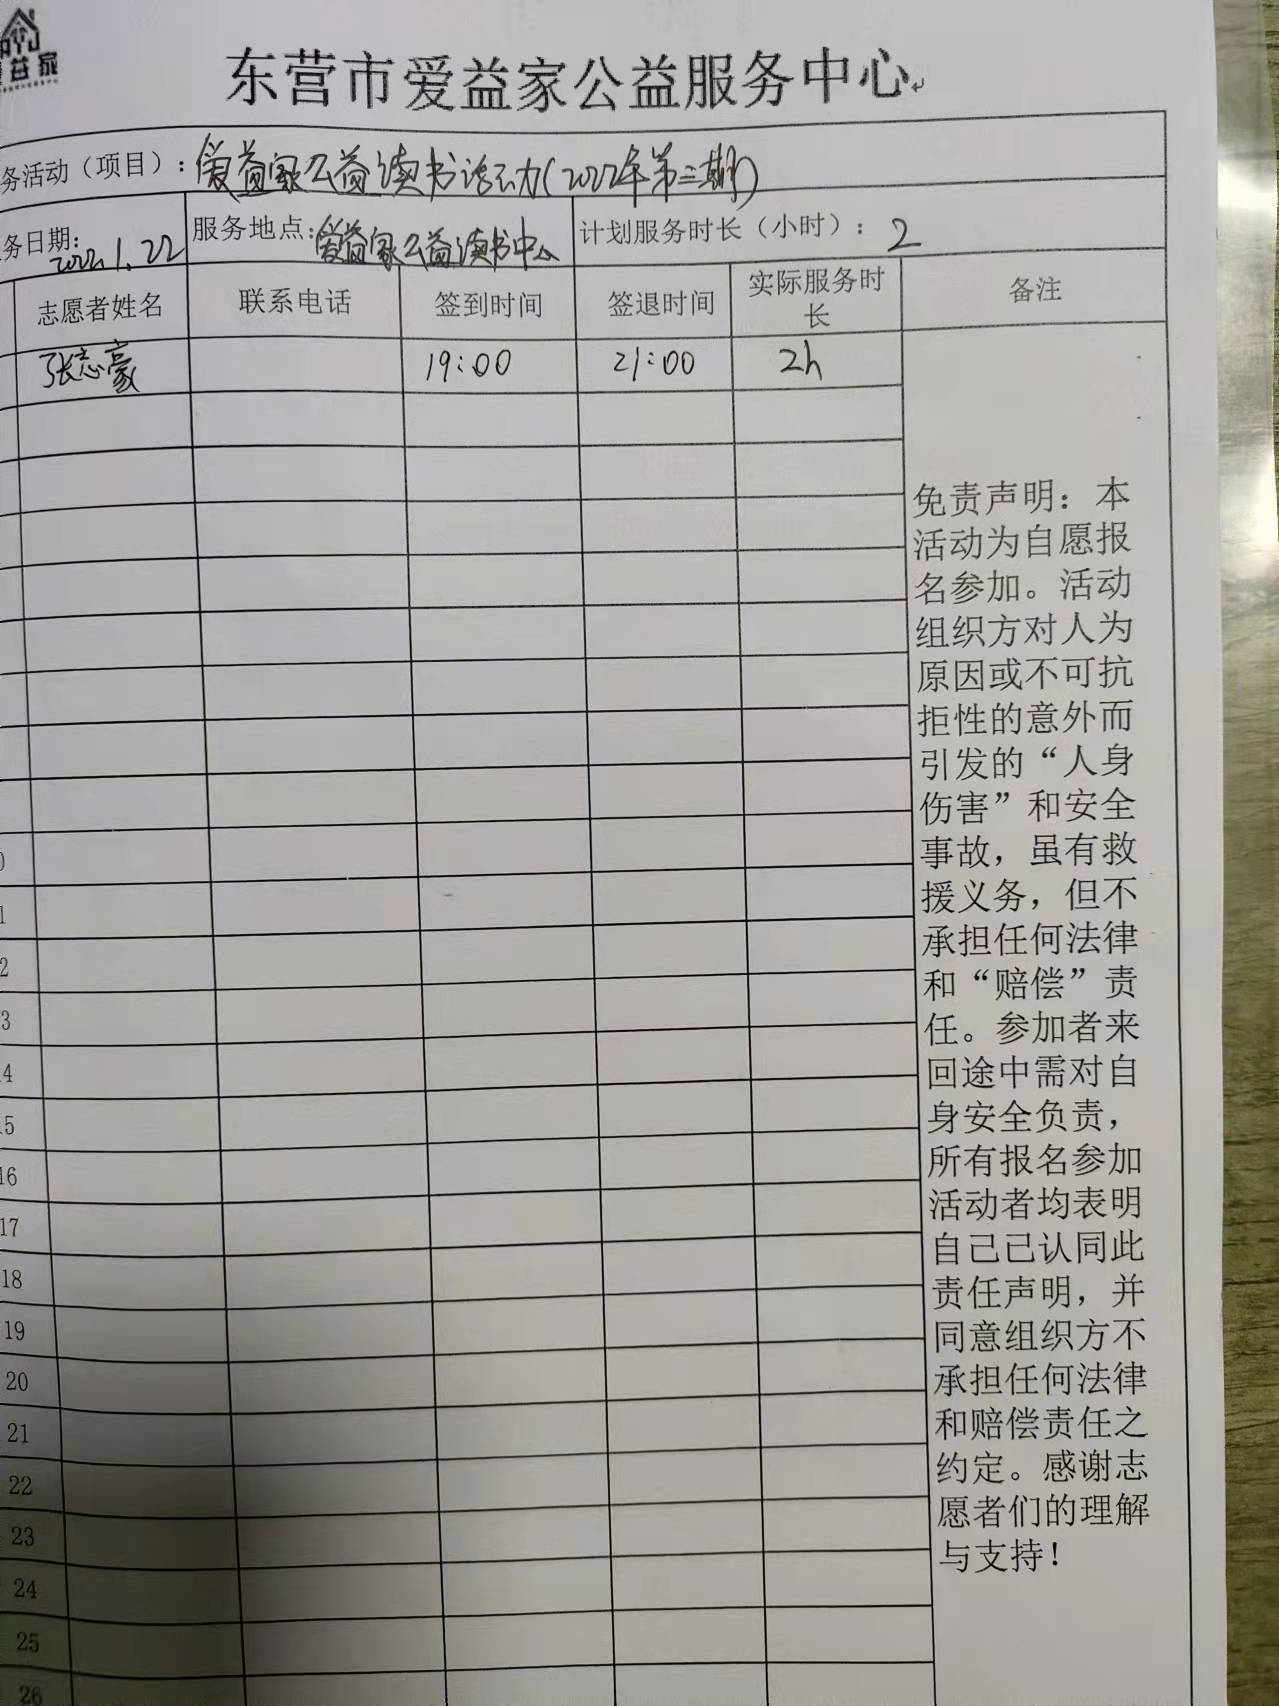 益家
东营市爱益家公益服务中心
务活动（项目）：爱益家公益读书活动(2022年第三期)
务日期：2022.1.22 服务地点：爱益家公益读书中心 计划服务时长（小时）：2
志愿者姓名 联系电话 签到时间 签退时间 实际服务时长 备注
张志豪 19:00 21:00 2h
免责声明：本
活动为自愿报
名参加。活动
组织方对人为
原因或不可抗
拒性的意外而
引发的“人身
伤害”和安全
事故，虽有救
援义务，但不
承担任何法律
和“赔偿”责
任。参加者来
回途中需对自
身安全负责，
所有报名参加
活动者均表明
自己已认同此
责任声明，并
同意组织方不
承担任何法律
和赔偿责任之
约定。感谢志
愿者们的理解
与支持！
0
1
2
3
4
5
16
17
18
19
20
21
22
23
24
25
26